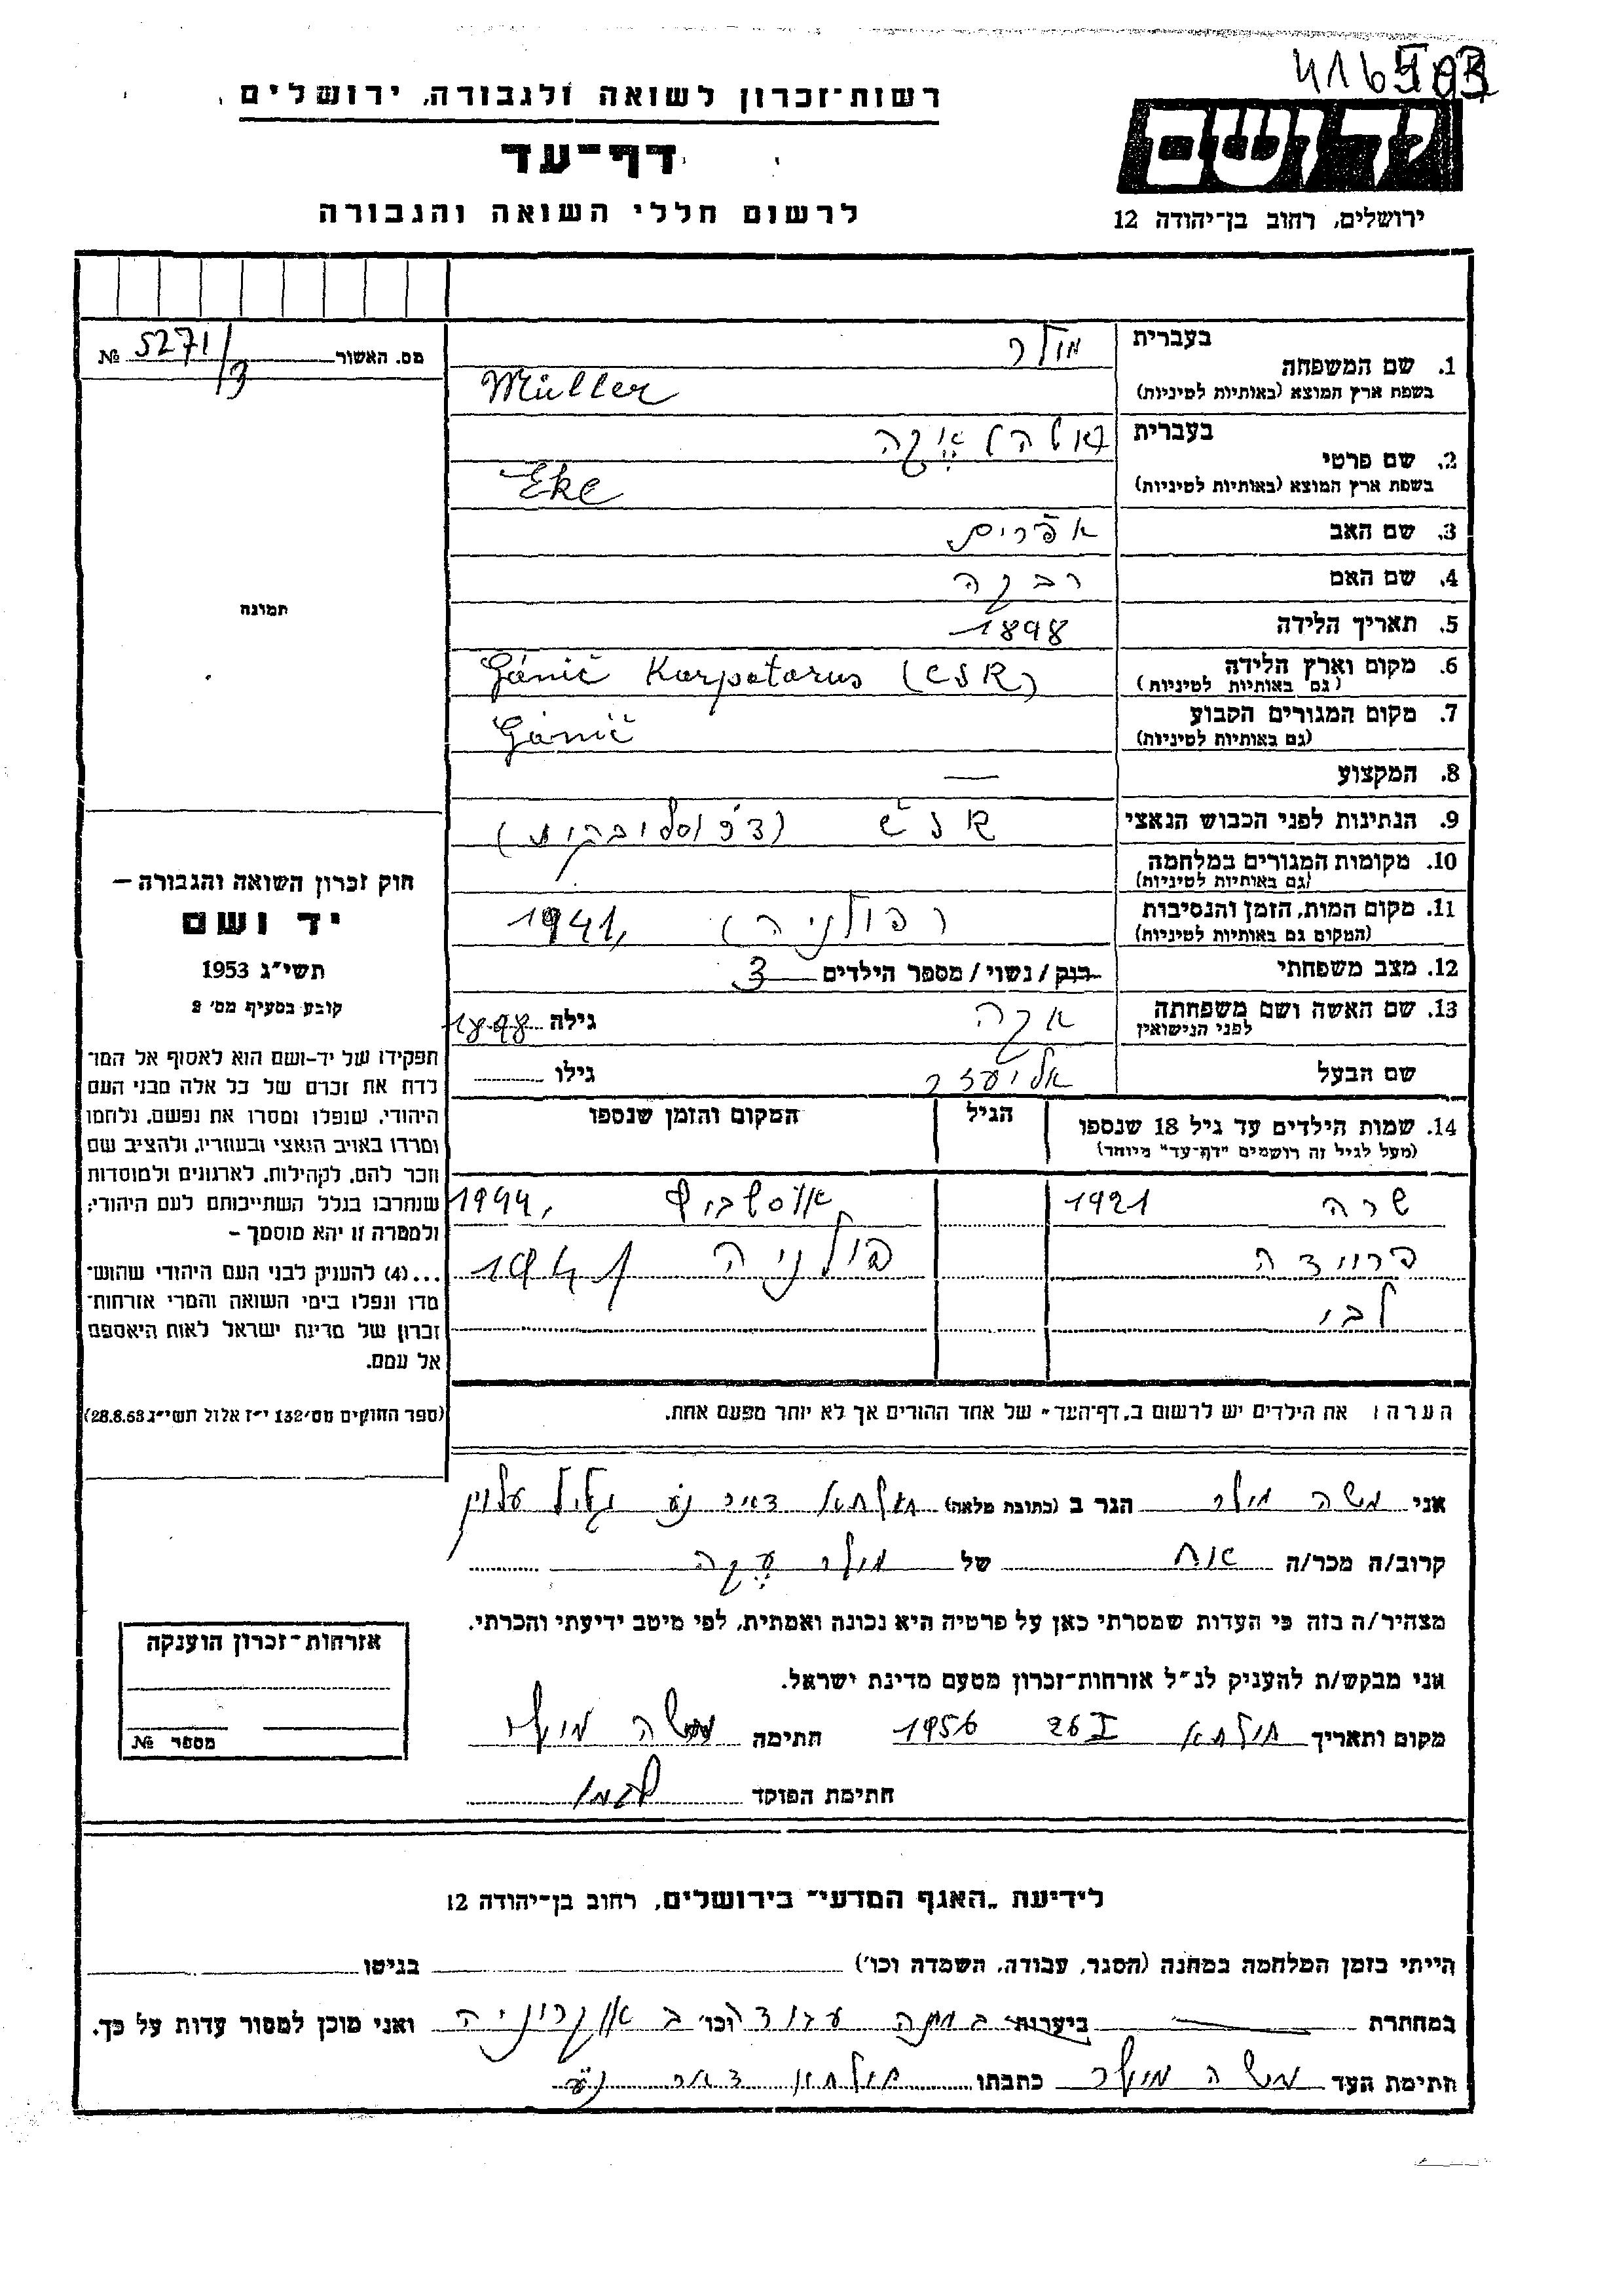 רשות־זכרון לשואה ולגבורה, ירושלים
דף־עד
לרשום חללי השואה והגבורה
יד ושם
ירושלים, רחוב בן־יהודה 12
מס. האשור 5271/3 №
תמונה
חוק זכרון השואה והגבורה –
יד ושם
תשי״ג 1953
קובע בסעיף מס׳ 2
תפקידו של יד-ושם הוא לאסוף אל המו־
לדת את זכרם של כל אלה מבני העם
היהודי, שנפלו ומסרו את נפשם, נלחמו
ומרדו באויב הנאצי ובעוזריו, ולהציב שם
וזכר להם, לקהילות, לארגונים ולמוסדות
שנחרבו בגלל השתייכותם לעם היהודי;
ולמטרה זו יהא מוסמך –
...(4) להעניק לבני העם היהודי שהוש־
מדו ונפלו בימי השואה והמרי אזרחות־
זכרון של מדינת ישראל לאות היאספם
אל עמם.
(ספר החוקים מס׳ 132 י״ז אלול תשי״ג 28.8.53)
1. שם המשפחה בעברית מולר
בשפת ארץ המוצא (באותיות לטיניות) Müller
2. שם פרטי בעברית אקה
בשפת ארץ המוצא (באותיות לטיניות) Eke
3. שם האב אפרים
4. שם האם רבקה
5. תאריך הלידה 1898
6. מקום וארץ הלידה (גם באותיות לטיניות) Gánič Karpatarus (CSR)
7. מקום המגורים הקבוע (גם באותיות לטיניות) Gánič
8. המקצוע —
9. הנתינות לפני הכבוש הנאצי
10. מקומות המגורים במלחמה (גם באותיות לטיניות)
11. מקום המות, הזמן והנסיבות (המקום גם באותיות לטיניות) (פולניה) 1941,
12. מצב משפחתי רווק / נשוי / מספר הילדים 3
13. שם האשה ושם משפחתה לפני הנישואין אקה גילה 1898
שם הבעל אליעזר גילו
14. שמות הילדים עד גיל 18 שנספו (מעל לגיל זה רושמים "דף־עד" מיוחד) הגיל המקום והזמן שנספו
שרה 1921 אושביץ 1944,
פרוידה פולניה 1941
לבי
הערה: את הילדים יש לרשום ב„דף־העד" של אחד ההורים אך לא יותר מפעם אחת.
אני משה מולר הגר ב (כתובת מלאה) חולתא דאר נע גליל עליון
קרוב/ה מכר/ה אח של מולר עקה
מצהיר/ה בזה כי העדות שמסרתי כאן על פרטיה היא נכונה ואמתית, לפי מיטב ידיעתי והכרתי.
אני מבקש/ת להעניק לנ״ל אזרחות־זכרון מטעם מדינת ישראל.
מקום ותאריך חולתא 26 I 1956 חתימה משה מולר
חתימת הפוקד
אזרחות־זכרון הוענקה
מספר №
לידיעת „האגף המדעי" בירושלים, רחוב בן־יהודה 12
הייתי בזמן המלחמה במחנה (הסגר, עבודה, השמדה וכו׳) בגיטו
במחתרת ביערות במחנה עבודה וכו׳ ב ואני מוכן למסור עדות על כך.
חתימת העד משה מולר כתבתו חולתא דאר נע